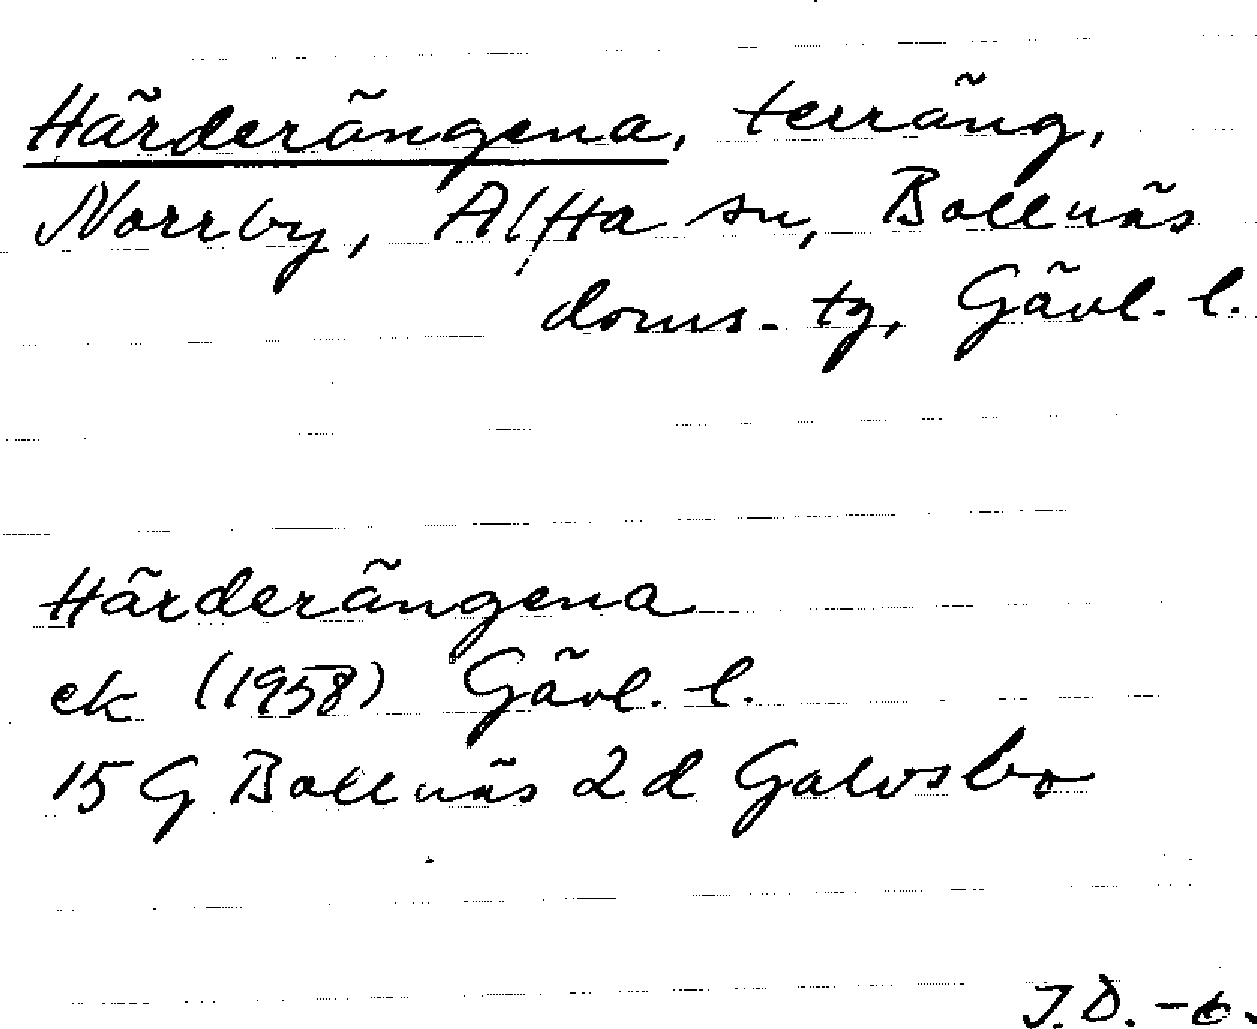 Härderängena, terräng,
Norrby, Alfta sn, Bollnäs
doms. tg, Gävl. l.
Härderängena
ek (1958) Gävl. l.
15 G Bollnäs 2d Galvsbo
J.D. -6.